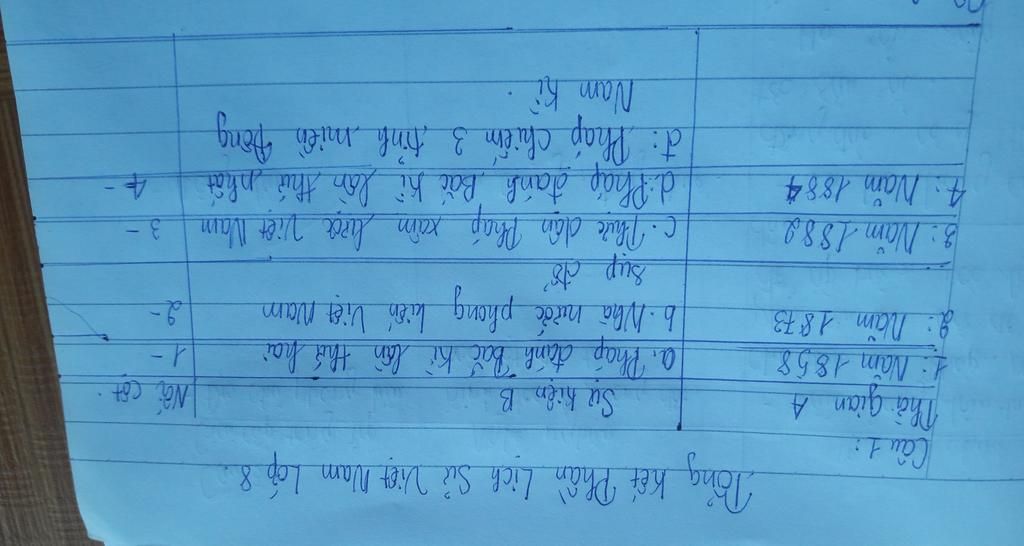 Tổng kết Phần Lịch Sử Việt Nam Lớp 8.
Câu 1:
Thời gian A Sự kiện B Nối cột.
1: Năm 1858 a. Pháp đánh Bắc Kì lần thứ hai 1-
2: Năm 1873 b. Nhà nước phong kiến Việt Nam 2-
sụp đổ
3: Năm 1882 c. Thực dân Pháp xâm lược Việt Nam 3-
4: Năm 1884 d. Pháp đánh Bắc Kì lần thứ nhất 4-
đ: Pháp chiếm 3 tỉnh miền Đông
Nam Kì.